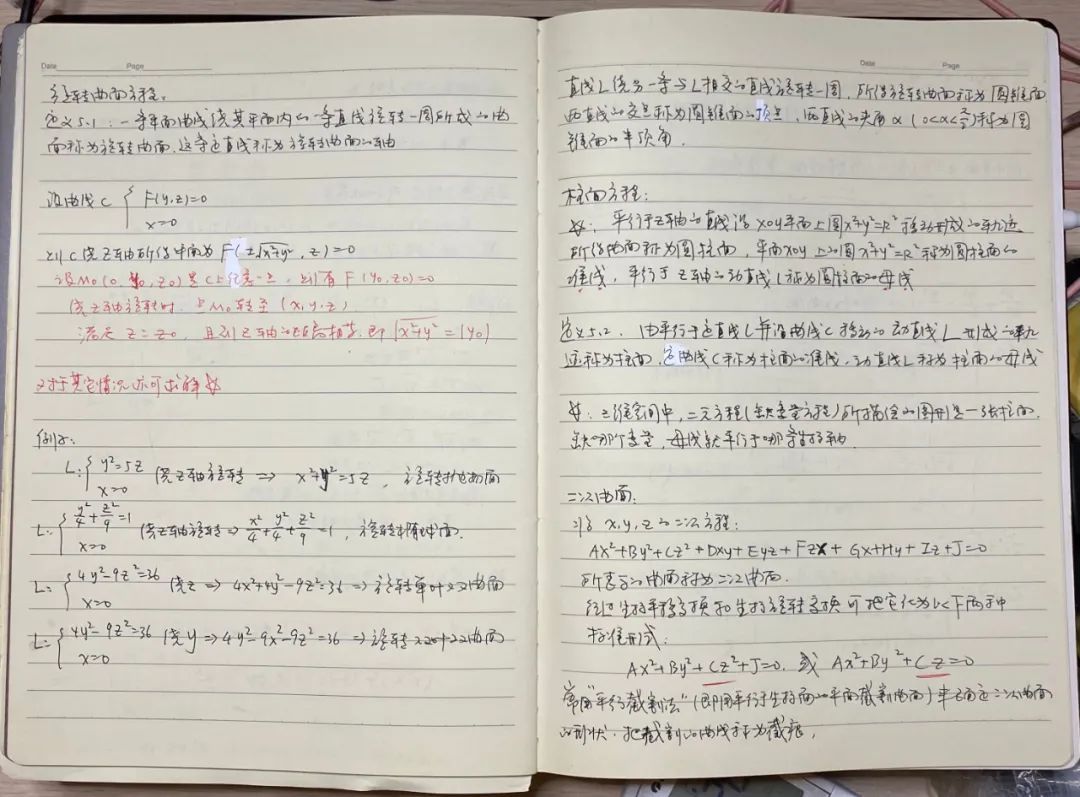 Date Page
旋转曲面方程。
定义5.1:一条平面曲线绕其平面内的一条直线旋转一周所成的曲
面称为旋转曲面,这条定直线称为旋转曲面的轴
设曲线C { F(y,z)=0
x=0
则C绕Z轴所得曲面为 F(±√x²+y², z)=0
设M₀(0, y₀, z₀)是C上任意一点,则有 F(y₀,z₀)=0
绕Z轴旋转时,点M₀转至(x,y,z)
满足 z=z₀,且到Z轴的距离相等,即√x²+y²=|y₀|
对于其它情况亦可求解
例:
L: { y²=5z 绕z轴旋转 ⇒ x²+y²=5z,旋转抛物面
x=0
L: { y²/4+z²/9=1 绕z轴旋转⇒ x²/4+y²/4+z²/9=1,旋转椭球面.
x=0
L: { 4y²-9z²=36 绕z ⇒ 4x²+4y²-9z²=36 ⇒ 旋转单叶双曲面
x=0
L: { 4y²-9z²=36 绕y ⇒ 4y²-9x²-9z²=36 ⇒ 旋转双叶双曲面
x=0
Date Page
直线L绕另一条与L相交的直线旋转一周,所得旋转曲面称为圆锥面
两直线的交点称为圆锥面的顶点,两直线的夹角α(0<α<π/2)称为圆
锥面的半顶角.
柱面方程:
平行于z轴的直线沿xoy平面上圆x²+y²=R²移动形成的轨迹
所得曲面称为圆柱面,平面xoy上的圆x²+y²=R²称为圆柱面的
准线,平行于z轴的动直线l称为圆柱面的母线
定义5.2. 由平行于定直线L并沿曲线C移动的动直线L形成的轨
迹称为柱面,定曲线C称为柱面的准线,动直线L称为柱面的母线
三维空间中,二元方程(缺变量方程)所描绘的图形是一张柱面,
缺哪个变量,母线就平行于哪条坐标轴.
二次曲面.
x,y,z的二次方程:
Ax²+By²+Cz²+Dxy+Eyz+Fzx+Gx+Hy+Iz+J=0
所表示的曲面称为二次曲面.
经过坐标平移变换和坐标旋转变换可把它化为以下两种
标准形式:
Ax²+By²+Cz²+J=0. 或 Ax²+By²+Cz=0
常用“平行截割法”(即用平行于坐标面的平面截割曲面)来确定二次曲面
的形状,把截割的曲线称为截痕,